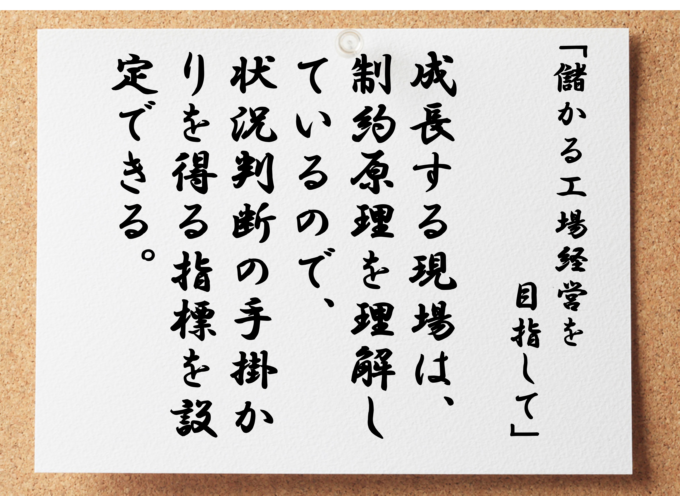 「儲かる工場経営を
目指して」
成長する現場は、
制約原理を理解し
ているので、
状況判断の手掛か
りを得る指標を設
定できる。